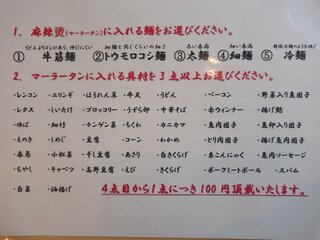 1、麻辣烫(マーラータン)に入れる麺をお選びください。
うどんよりコシがあり、時さにくい 細麺と同じくらいの細さ 太い春雨 細い春雨 韓国冷麺のような食感
①牛筋麺 ②トウモロコシ麺 ③太麺 ④細麺 ⑤冷麺
2、マーラータンに入れる具材を3点以上お選びください。
・レンコン ・エリンギ ・ほうれん草 ・牛足 ・うどん ・ベーコン ・野菜入り魚団子
・レタス ・しいたけ ・ブロッコリー ・うずら卵 ・中華そば ・赤ウィンナー ・揚げ麩
・ゆば ・細竹 ・チンゲン菜 ・ちくわ ・カニカマ ・魚肉団子 ・魚卵入り団子
・えのき ・しめじ ・豆腐 ・コーン ・わかめ ・とり肉団子 ・揚げ魚団子
・春菊 ・小松菜 ・干し豆腐 ・あさり ・白きくらげ ・糸こんにゃく ・魚肉ソーセージ
・もやし ・キャベツ ・高野豆腐 ・えび ・きくらげ ・ポークミートボール ・スパム
・白菜 ・油揚げ
4点目から1点につき100円頂戴いたします。